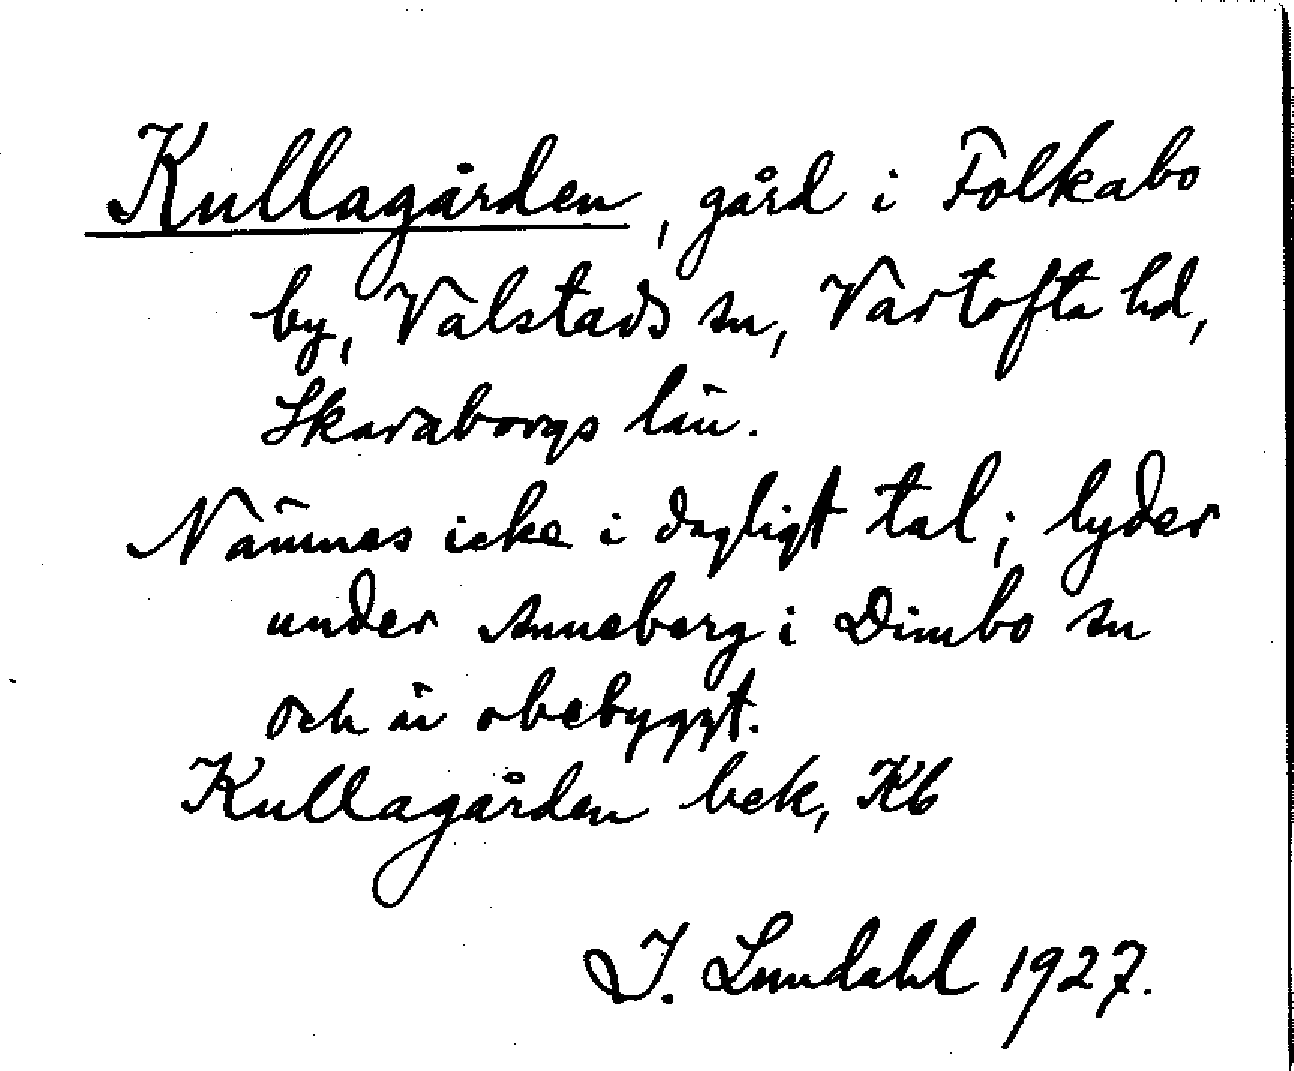 Kullagården, gård i Folkabo
by, Valstads sn, Vartofta hd,
Skaraborgs län.
Nämnes icke i dagligt tal; lyder
under Anneberg i Dimbo sn
och är obebyggt.
Kullagården bek, Kb
I. Lundahl 1927.